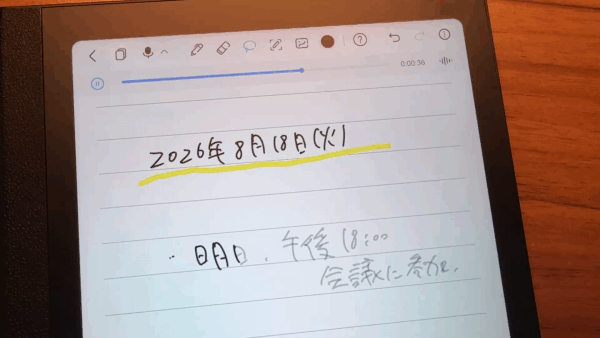 0:00:36
2026年8月18日(火)
・明日、午後18:00
会議に参加.